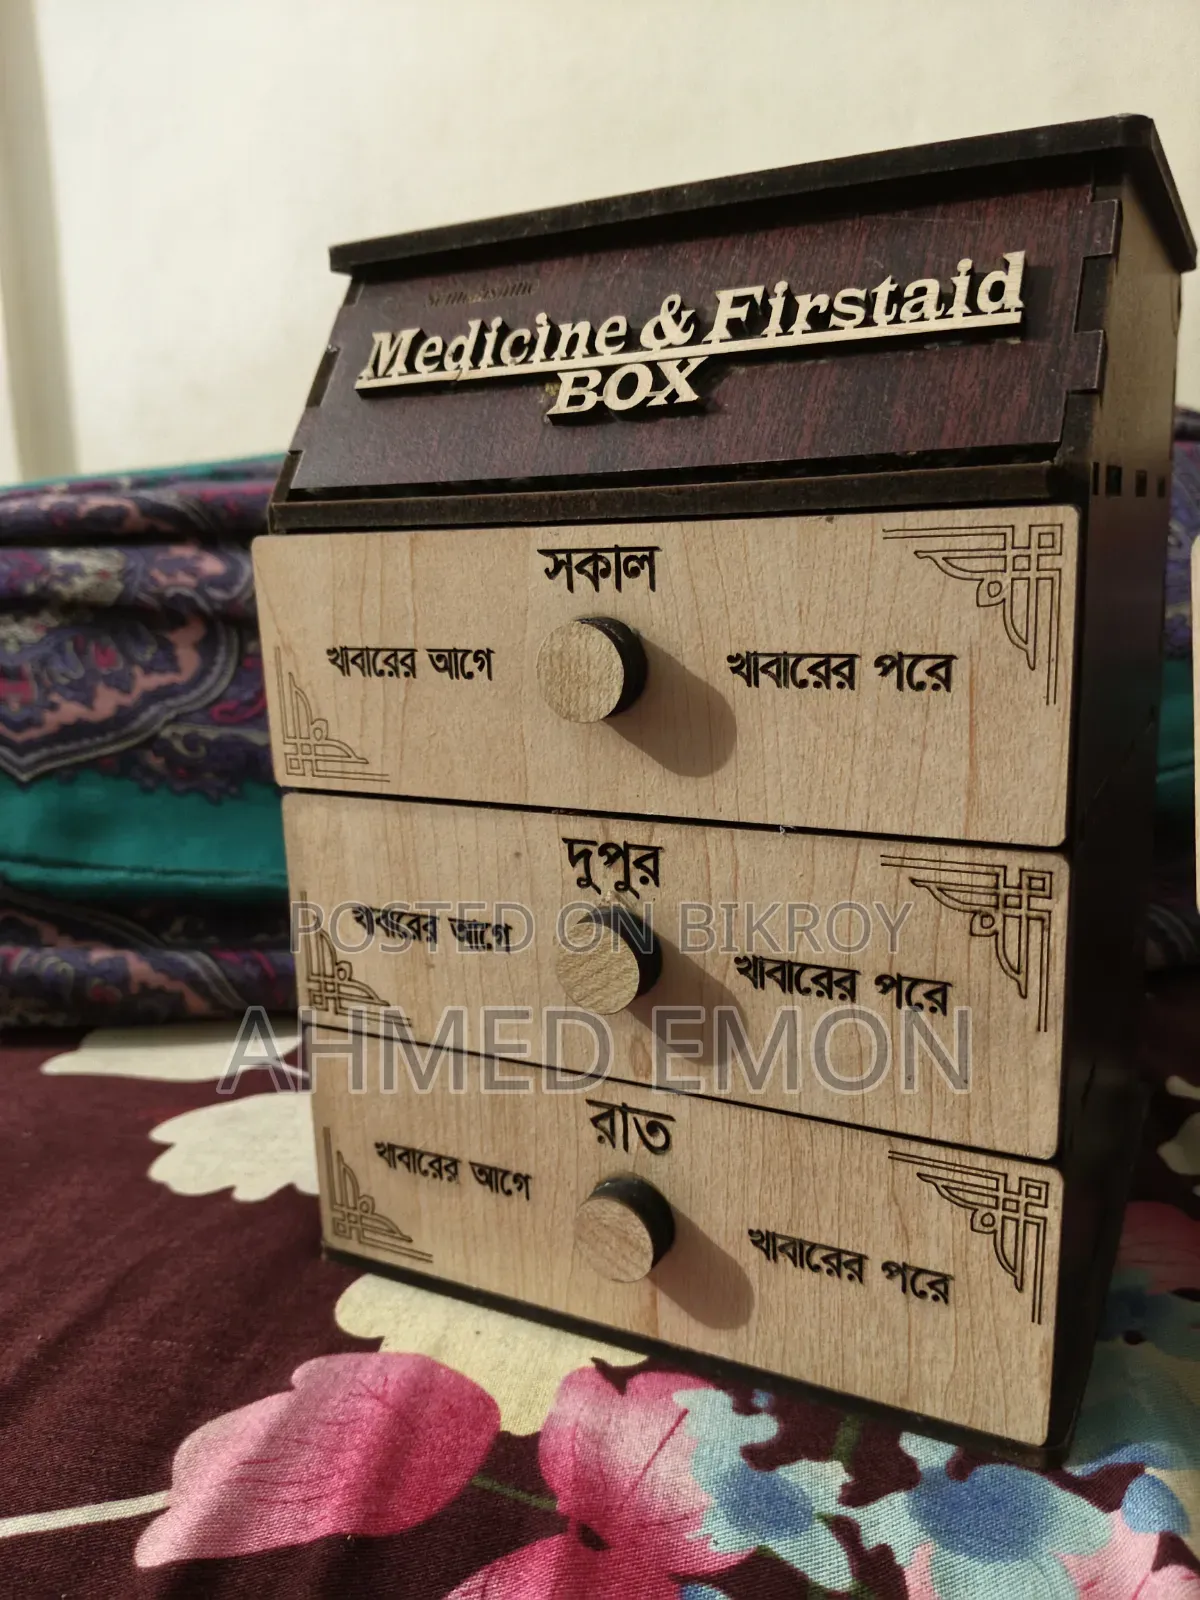 Medicine & Firstaid
BOX
সকাল
খাবারের আগে
খাবারের পরে
দুপুর
খাবারের আগে
খাবারের পরে
POSTED ON BIKROY
AHMED EMON
রাত
খাবারের আগে
খাবারের পরে